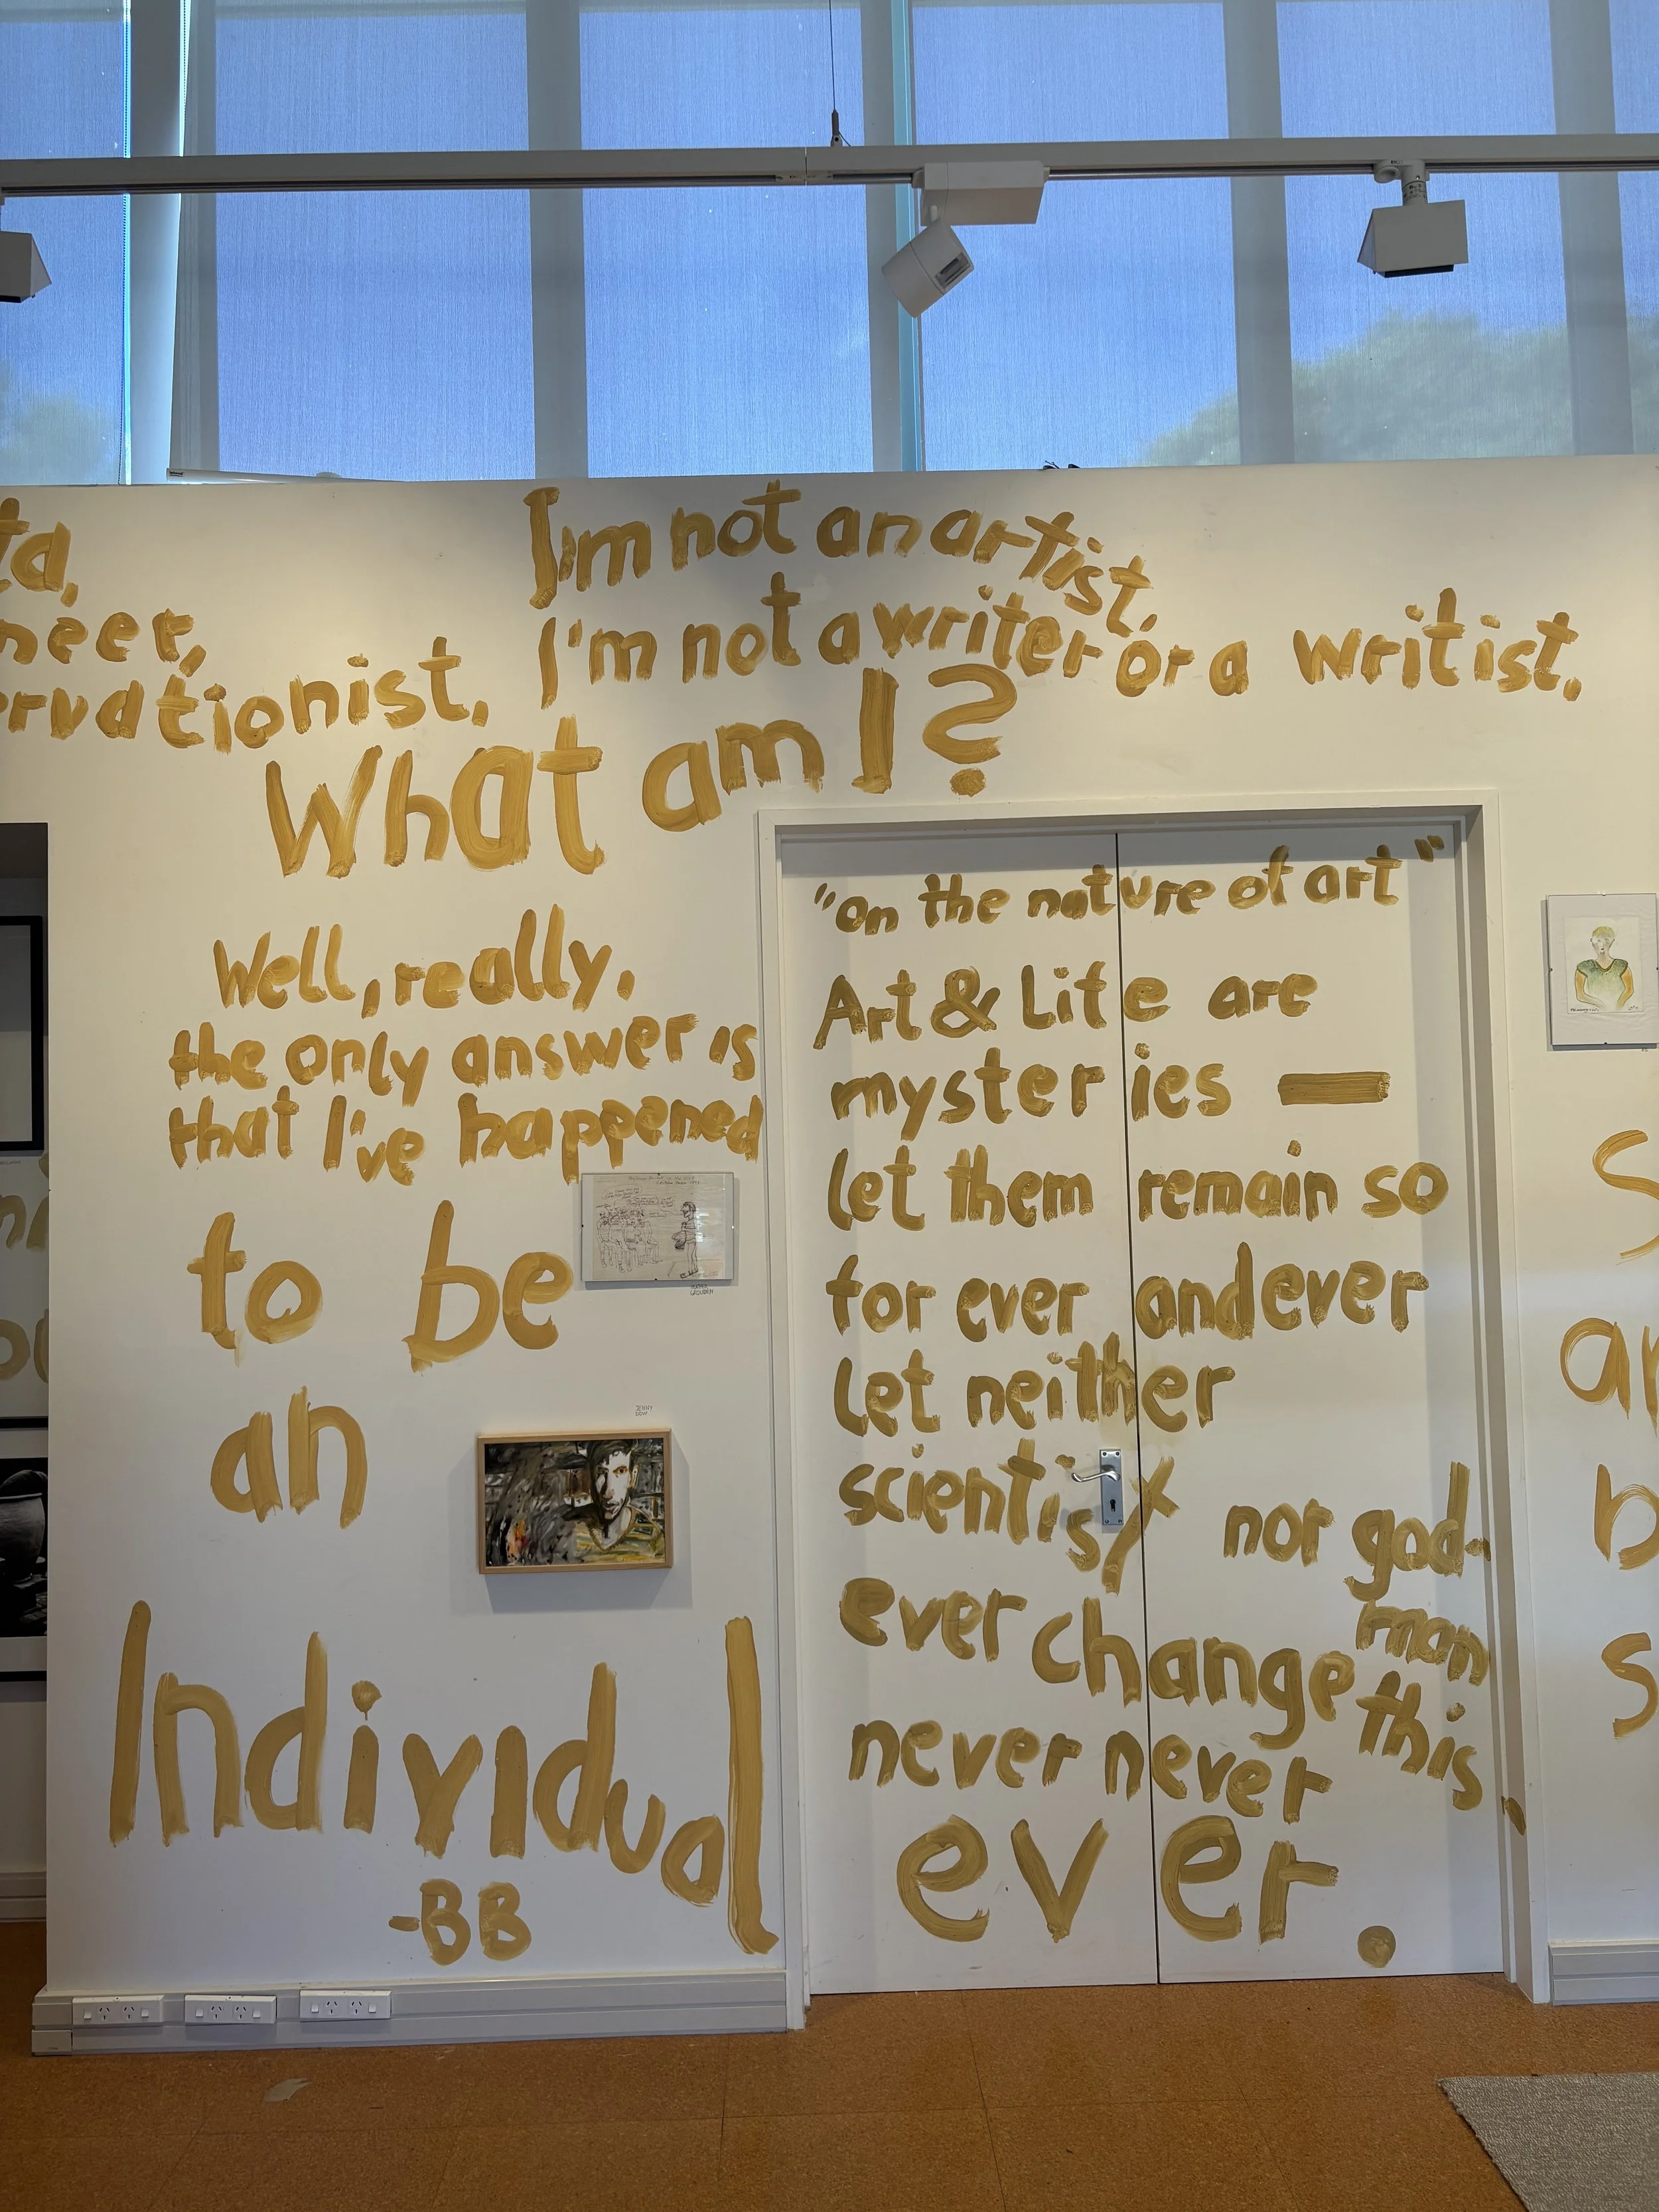 I'm not an artist.
I'm not a writer or a writist.
What am I?
Well, really,
the only answer is
that I've happened
to be
an
Individual
-BB
JENNY
"on the nature of art"
Art & Life are
mysteries —
let them remain so
for ever and ever
Let neither
scientist nor god-
man
ever change this
never never
ever.